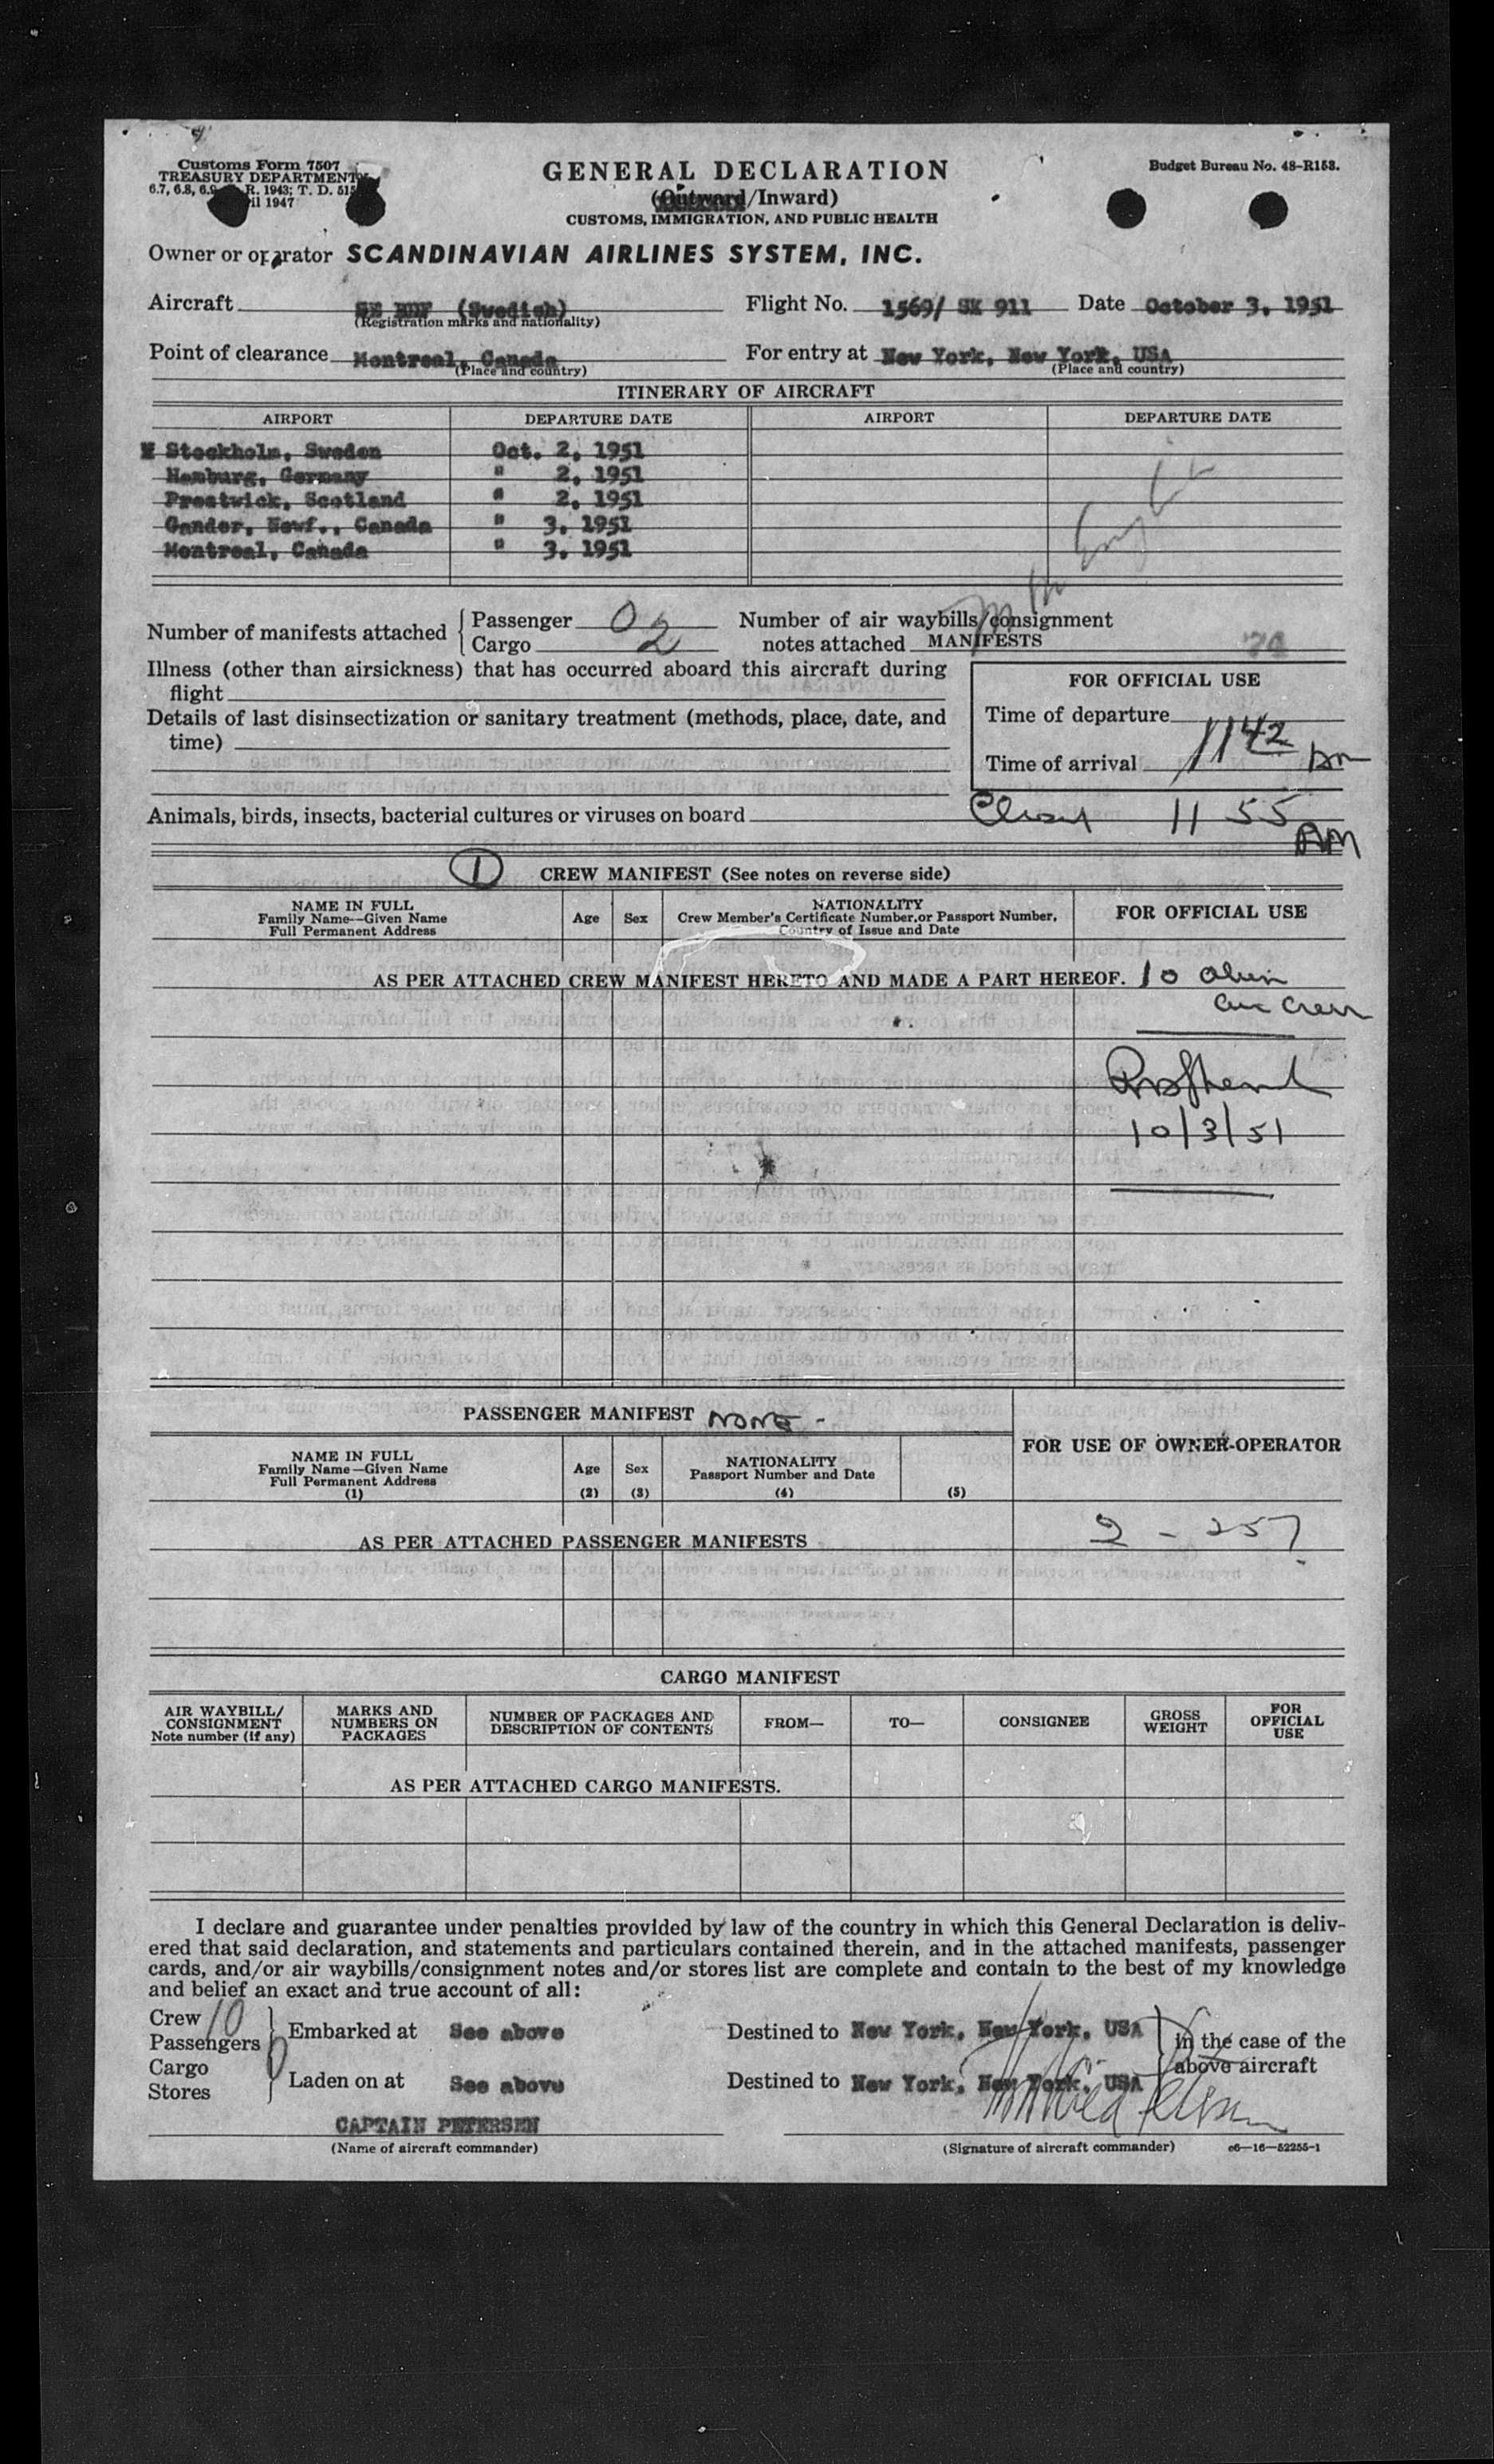 Customs Form 7507
TREASURY DEPARTMENT
6.7, 6.8, 6.9 R. 1943; T. D. 515
il 1947
GENERAL DECLARATION
(Outward/Inward)
CUSTOMS, IMMIGRATION, AND PUBLIC HEALTH
Budget Bureau No. 48-R153.
Owner or operator SCANDINAVIAN AIRLINES SYSTEM, INC.
Aircraft SE BDF (Swedish)
(Registration marks and nationality)
Flight No. 1569/ SK 911 Date October 3, 1951
Point of clearance Montreal, Canada
(Place and country)
For entry at New York, New York, USA
(Place and country)
ITINERARY OF AIRCRAFT
AIRPORT DEPARTURE DATE AIRPORT DEPARTURE DATE
Stockholm, Sweden Oct. 2, 1951
Hamburg, Germany " 2, 1951
Prestwick, Scotland " 2, 1951
Gander, Newf., Canada " 3, 1951
Montreal, Canada " 3, 1951
Number of manifests attached { Passenger 0
Cargo 2
Number of air waybills/consignment
notes attached MANIFESTS
Illness (other than airsickness) that has occurred aboard this aircraft during
flight
Details of last disinsectization or sanitary treatment (methods, place, date, and
time)
FOR OFFICIAL USE
Time of departure
Time of arrival 1142 AM
Animals, birds, insects, bacterial cultures or viruses on board
11 55 AM
1 CREW MANIFEST (See notes on reverse side)
NAME IN FULL
Family Name—Given Name
Full Permanent Address
Age Sex
NATIONALITY
Crew Member's Certificate Number, or Passport Number,
Country of Issue and Date
FOR OFFICIAL USE
AS PER ATTACHED CREW MANIFEST HERETO AND MADE A PART HEREOF. 10 alien
crew
10/3/51
PASSENGER MANIFEST NONE -
FOR USE OF OWNER-OPERATOR
NAME IN FULL
Family Name—Given Name
Full Permanent Address
(1)
Age
(2)
Sex
(3)
NATIONALITY
Passport Number and Date
(4)
(5)
2 - 257
AS PER ATTACHED PASSENGER MANIFESTS
CARGO MANIFEST
AIR WAYBILL/
CONSIGNMENT
Note number (if any)
MARKS AND
NUMBERS ON
PACKAGES
NUMBER OF PACKAGES AND
DESCRIPTION OF CONTENTS
FROM—
TO—
CONSIGNEE
GROSS
WEIGHT
FOR
OFFICIAL
USE
AS PER ATTACHED CARGO MANIFESTS.
I declare and guarantee under penalties provided by law of the country in which this General Declaration is deliv-
ered that said declaration, and statements and particulars contained therein, and in the attached manifests, passenger
cards, and/or air waybills/consignment notes and/or stores list are complete and contain to the best of my knowledge
and belief an exact and true account of all:
Crew 10
Passengers 0
Embarked at See above Destined to New York, New York, USA
Cargo
Stores
Laden on at See above Destined to New York, New York, USA
in the case of the
above aircraft
CAPTAIN PETERSEN
(Name of aircraft commander)
(Signature of aircraft commander)
c6—16—52255-1